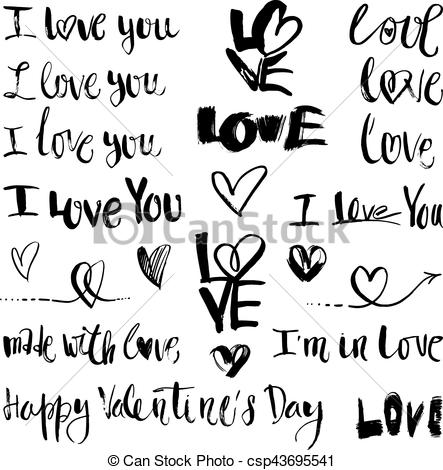 I love you
LOVE
love
I love you
love
I love you
LOVE
love
I LOVE YOU
I Love You
© Can Stock Photo
LOVE
made with love,
I'm in Love
Happy Valentine's Day
LOVE
© Can Stock Photo - csp43695541